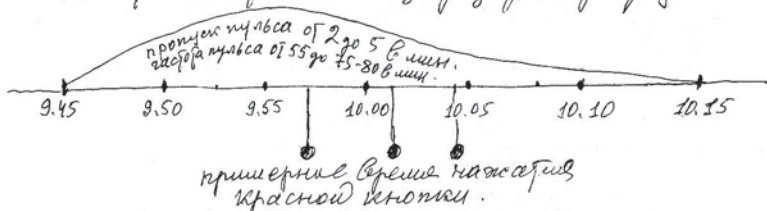 пропуск пульса от 2 до 5 в мин.
частота пульса от 55 до 75-80 в мин.
9.45 9.50 9.55 10.00 10.05 10.10 10.15
примерное время нажатия
красной кнопки.